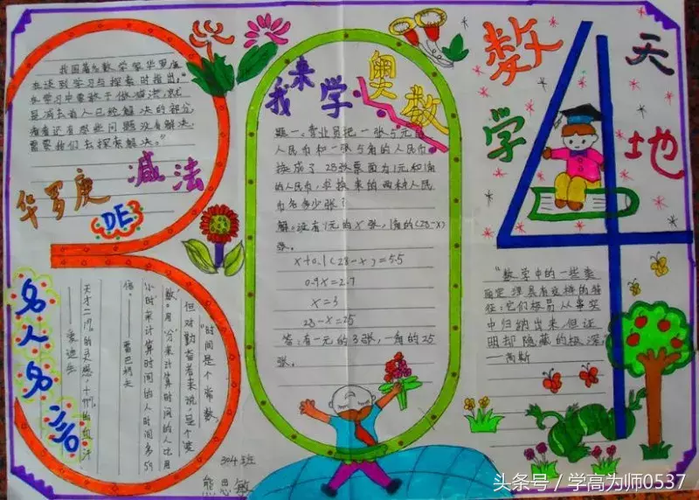 我国著名数学家华罗庚
在谈到学习与探索时指出：“
在学习中要敢于做减法，就
是减去前人已经解决的部分
看看还有那些问题没有解决，
需要我们去探索解决。”
华罗庚
DE
减法
我来学奥数
题一、营业员把一张5元的
人民币和一张5角的人民币
换成了28张票面为1元和1角
的人民币，求换来的两种人民
币各多少张？
解：设有1元的x张，1角的(28-x)
张。
x+0.1(28-x)=5.5
0.9x=2.7
x=3
28-x=25
答：有一元的3张，一角的25
张。
数学天地
4
“数学中的一些美
丽定理具有这样的特
性：它们极易从事实
中归纳出来，但证
明却隐藏的极深。
——高斯
名人名言
“时间是个常数，
但对勤奋者来说，是个‘变
数’。用‘分’来计算时间的人比用
‘小时’来计算时间的人时间多59
倍。
——雷巴柯夫
天才=1%的灵感，+99%的血汗
——爱迪生
304班
熊思敏
头条号 / 学高为师0537